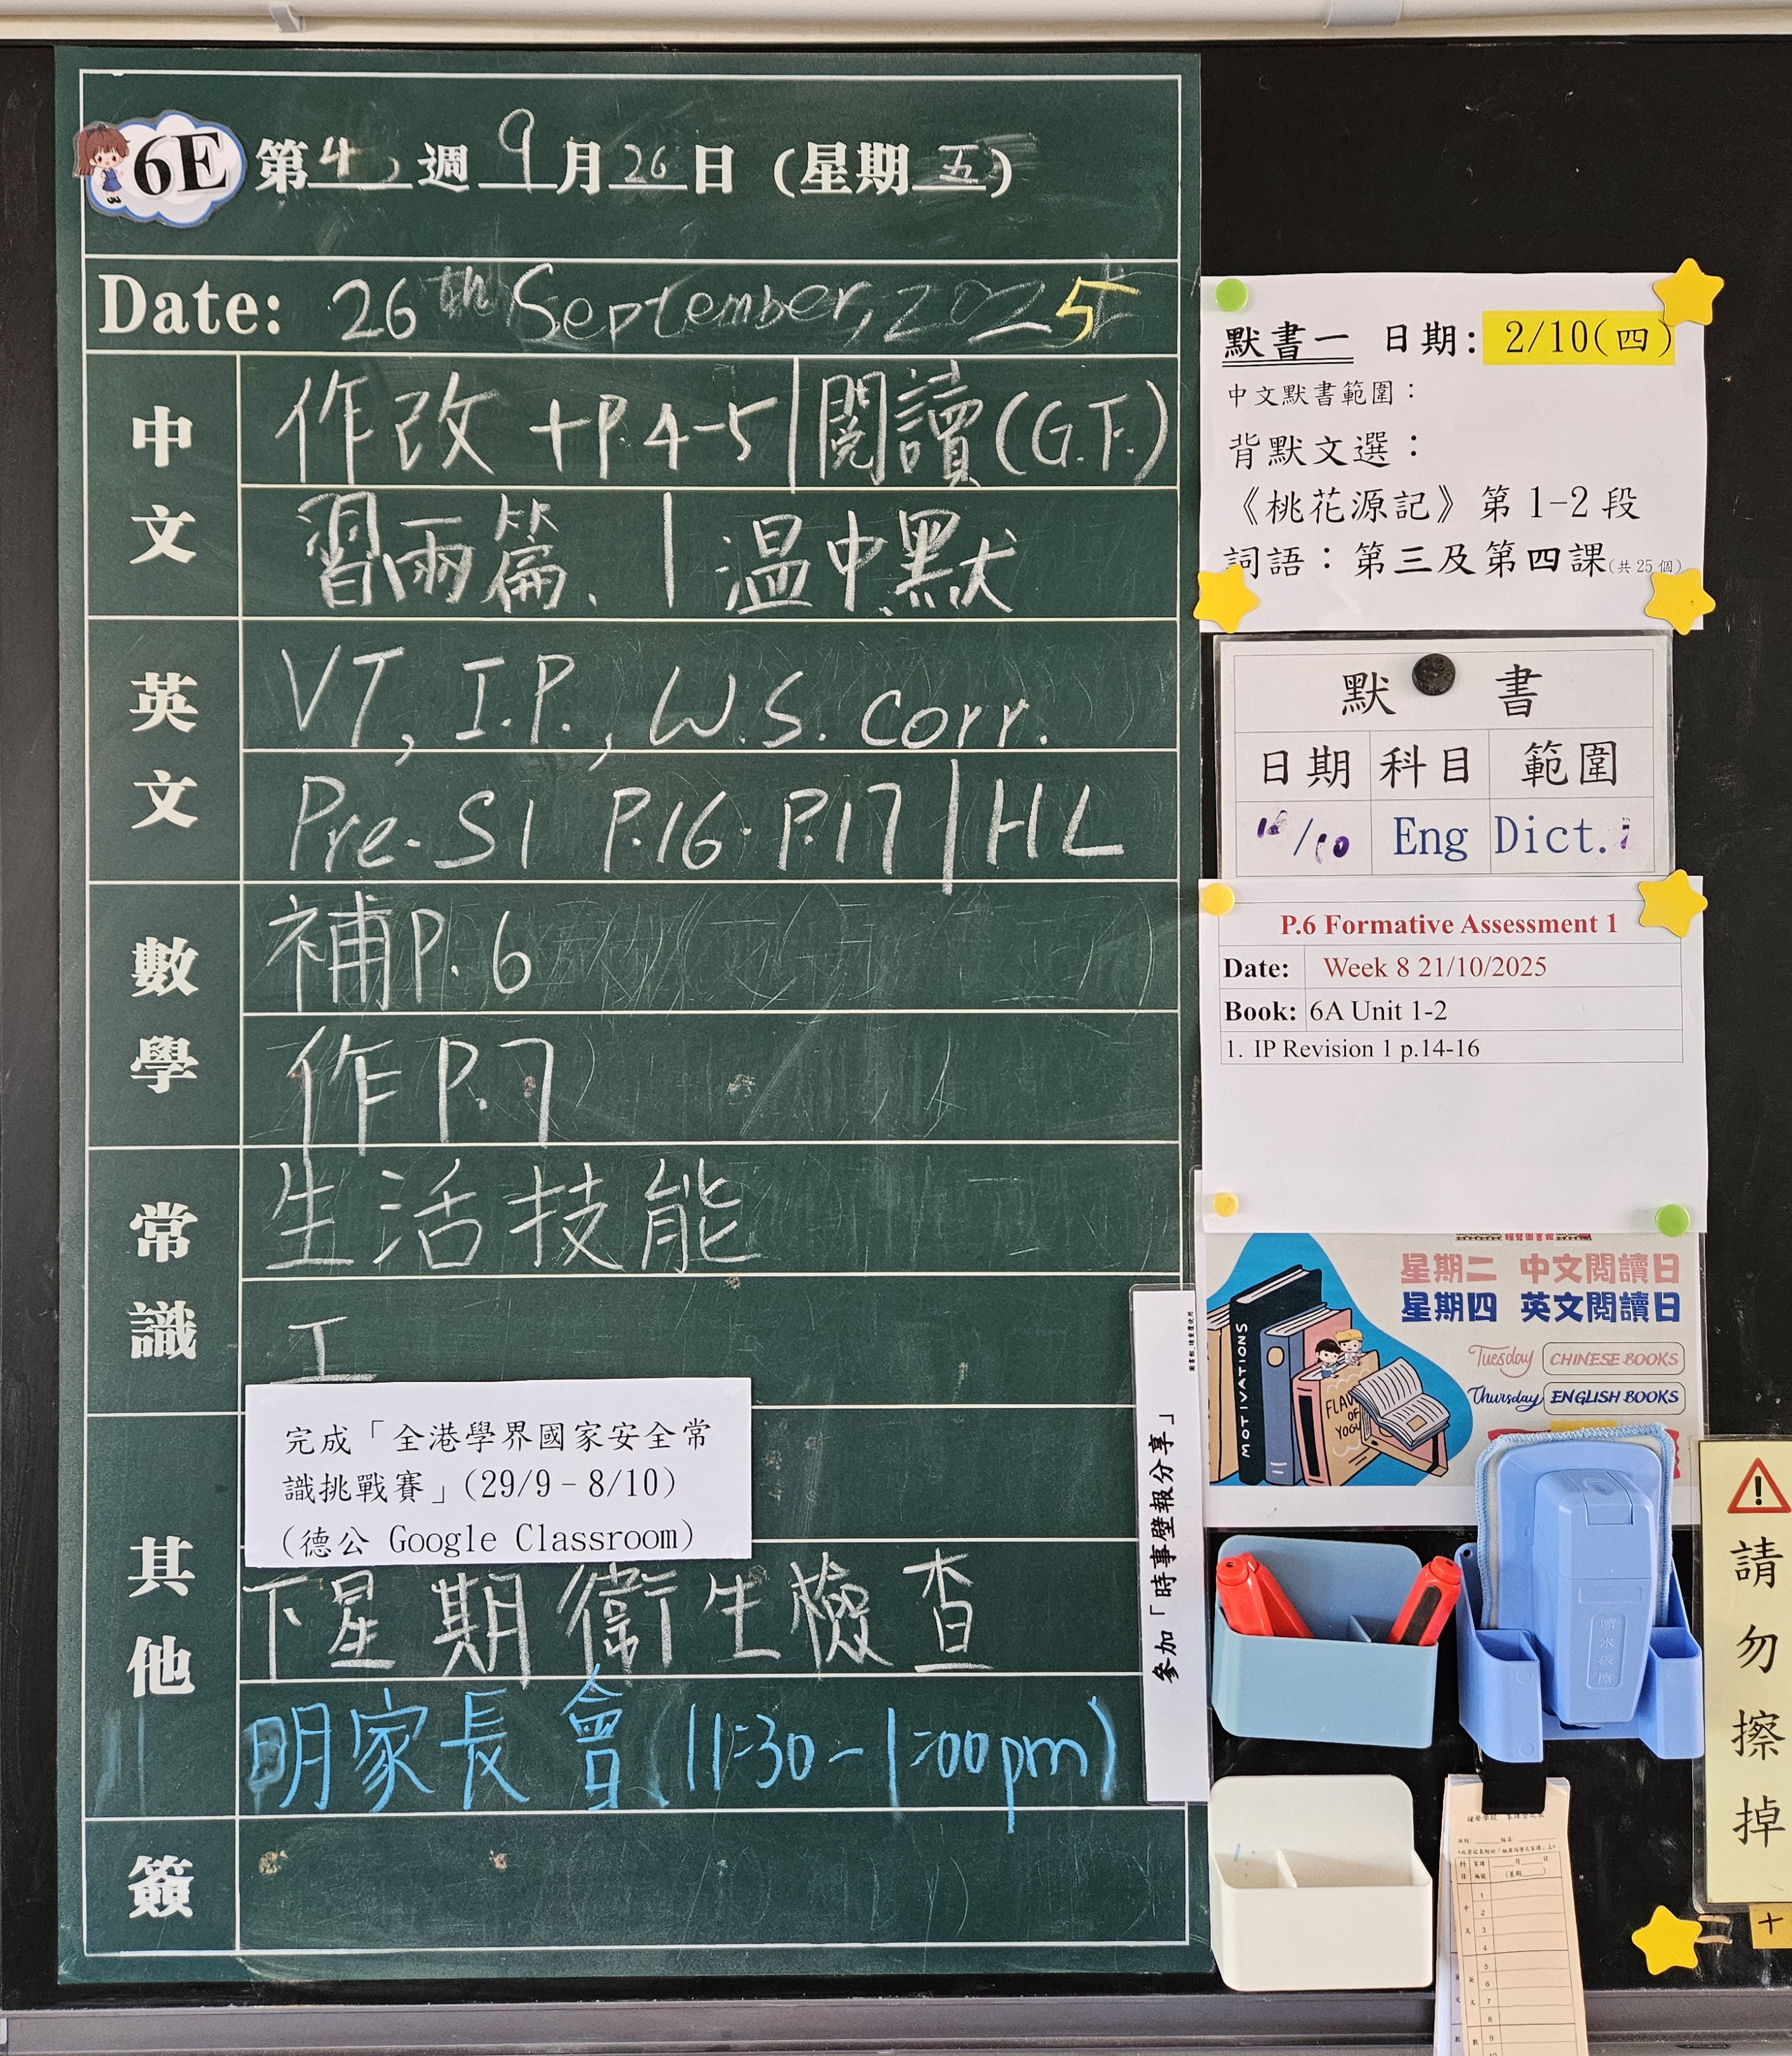 6E 第4週 9月26日 (星期五)
Date: 26th September, 2025
中文
作改 +P.4-5 | 閱讀(G.F.)
習雨篇、 | 溫中默
英文
VT, I.P., W.S. corr.
Pre-S1 P.16-P.17 | HL
數學
補P.6
作P.7
常識
生活技能
工
其他
完成「全港學界國家安全常
識挑戰賽」(29/9-8/10)
(德公 Google Classroom)
下星期衞生檢查
明家長會(11:30-1:00pm)
簽
默書一 日期: 2/10(四)
中文默書範圍:
背默文選:
《桃花源記》第 1-2 段
詞語:第三及第四課(共 25 個)
默 書
日期 科目 範圍
/10 Eng Dict.
P.6 Formative Assessment 1
Date: Week 8 21/10/2025
Book: 6A Unit 1-2
1. IP Revision 1 p.14-16
星期二 中文閱讀日
星期四 英文閱讀日
Tuesday CHINESE BOOKS
Thursday ENGLISH BOOKS
MOTIVATIONS
FLAV
OF
YOGU
參加「時事壁報分享」
請勿擦掉